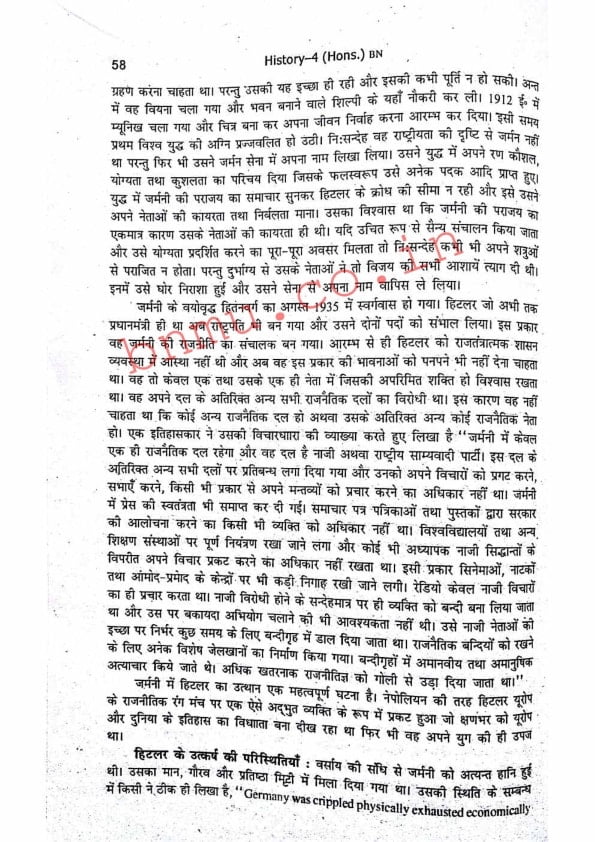 58
History–4 (Hons.) BN
ग्रहण करना चाहता था। परन्तु उसकी यह इच्छा ही रही और इसकी कभी पूर्ति न हो सकी। अन्त
में वह वियना चला गया और भवन बनाने वाले शिल्पी के यहाँ नौकरी कर ली। 1912 ई० में
म्यूनिख चला गया और चित्र बना कर अपना जीवन निर्वाह करना आरम्भ कर दिया। इसी समय
प्रथम विश्व युद्ध की अग्नि प्रज्जवलित हो उठी। नि:सन्देह वह राष्ट्रीयता की दृष्टि से जर्मन नहीं
था परन्तु फिर भी उसने जर्मन सेना में अपना नाम लिखा लिया। उसने युद्ध में अपने रण कौशल,
योग्यता तथा कुशलता का परिचय दिया जिसके फलस्वरूप उसे अनेक पदक आदि प्राप्त हुए।
युद्ध में जर्मनी की पराजय का समाचार सुनकर हिटलर के क्रोध की सीमा न रही और इसे उसने
अपने नेताओं की कायरता तथा निर्बलता माना। उसका विश्वास था कि जर्मनी की पराजय का
एकमात्र कारण उसके नेताओं की कायरता ही थी। यदि उचित रूप से सैन्य संचालन किया जाता
और उसे योग्यता प्रदर्शित करने का पूरा-पूरा अवसर मिलता तो नि:सन्देह कभी भी अपने शत्रुओं
से पराजित न होता। परन्तु दुर्भाग्य से उसके नेताओं ने तो विजय की सभी आशायें त्याग दी थी।
इनमें उसे घोर निराशा हुई और उसने सेना से अपना नाम वापिस ले लिया।
जर्मनी के वयोवृद्ध हितंनवर्ग का अगस्त 1935 में स्वर्गवास हो गया। हिटलर जो अभी तक
प्रधानमंत्री ही था अब राष्ट्रपति भी बन गया और उसने दोनों पदों को संभाल लिया। इस प्रकार
वह जर्मनी की राजनीति का संचालक बन गया। आरम्भ से ही हिटलर को राजतंत्रात्मक शासन
व्यवस्था में आस्था नहीं थी और अब वह इस प्रकार की भावनाओं को पनपने भी नहीं देना चाहता
था। वह तो केवल एक तथा उसके एक ही नेता में जिसकी अपरिमित शक्ति हो विश्वास रखता
था। वह अपने दल के अतिरिक्त अन्य सभी राजनैतिक दलों का विरोधी था। इस कारण वह नहीं
चाहता था कि कोई अन्य राजनैतिक दल हो अथवा उसके अतिरिक्त अन्य कोई राजनैतिक नेता
हो। एक इतिहासकार ने उसकी विचारधाारा की व्याख्या करते हुए लिखा है "जर्मनी में केवल
एक ही राजनैतिक दल रहेगा और वह दल है नाजी अथवा राष्ट्रीय साम्यवादी पार्टी। इस दल के
अतिरिक्त अन्य सभी दलों पर प्रतिबन्ध लगा दिया गया और उनको अपने विचारों को प्रगट करने,
सभाएँ करने, किसी भी प्रकार से अपने मन्तव्यों को प्रचार करने का अधिकार नहीं था। जर्मनी
में प्रेस की स्वतंत्रता भी समाप्त कर दी गई। समाचार पत्र पत्रिकाओं तथा पुस्तकों द्वारा सरकार
की आलोचना करने का किसी भी व्यक्ति को अधिकार नहीं था। विश्वविद्यालयों तथा अन्य
शिक्षण संस्थाओं पर पूर्ण नियंत्रण रखा जाने लगा और कोई भी अध्यापक नाजी सिद्धान्तों के
विपरीत अपने विचार प्रकट करने का अधिकार नहीं रखता था। इसी प्रकार सिनेमाओं, नाटकों
तथा आंमोद-प्रमोद के केन्द्रों पर भी कड़ी निगाह रखी जाने लगी। रेडियो केवल नाजी विचारों
का ही प्रचार करता था। नाजी विरोधी होने के सन्देहमात्र पर ही व्यक्ति को बन्दी बना लिया जाता
था और उस पर बकायदा अभियोग चलाने की भी आवश्यकता नहीं थी। उसे नाजी नेताओं की
इच्छा पर निर्भर कुछ समय के लिए बन्दीगृह में डाल दिया जाता था। राजनैतिक बन्दियों को रखने
के लिए अनेक विशेष जेलखानों का निर्माण किया गया। बन्दीगृहों में अमानवीय तथा अमानुषिक
अत्याचार किये जाते थे। अधिक खतरनाक राजनीतिज्ञ को गोली से उड़ा दिया जाता था।"
जर्मनी में हिटलर का उत्थान एक महत्वपूर्ण घटना है। नेपोलियन की तरह हिटलर यूरोप
के राजनीतिक रंग मंच पर एक ऐसे अद्भुत व्यक्ति के रूप में प्रकट हुआ जो क्षणभंर को यूरोप
और दुनिया के इतिहास का विधााता बना दीख रहा था फिर भी वह अपने युग की ही उपज
था।
हिटलर के उत्कर्ष की परिस्थितियाँ : वर्साय की संधि से जर्मनी को अत्यन्त हानि हुई
थी। उसका मान, गौरव और प्रतिष्ठा मिट्टी में मिला दिया गया था। उसकी स्थिति के सम्बन्ध
में किसी ने ठीक ही लिखा है, "Germany was crippled physically exhausted economically
bnmu.co.in